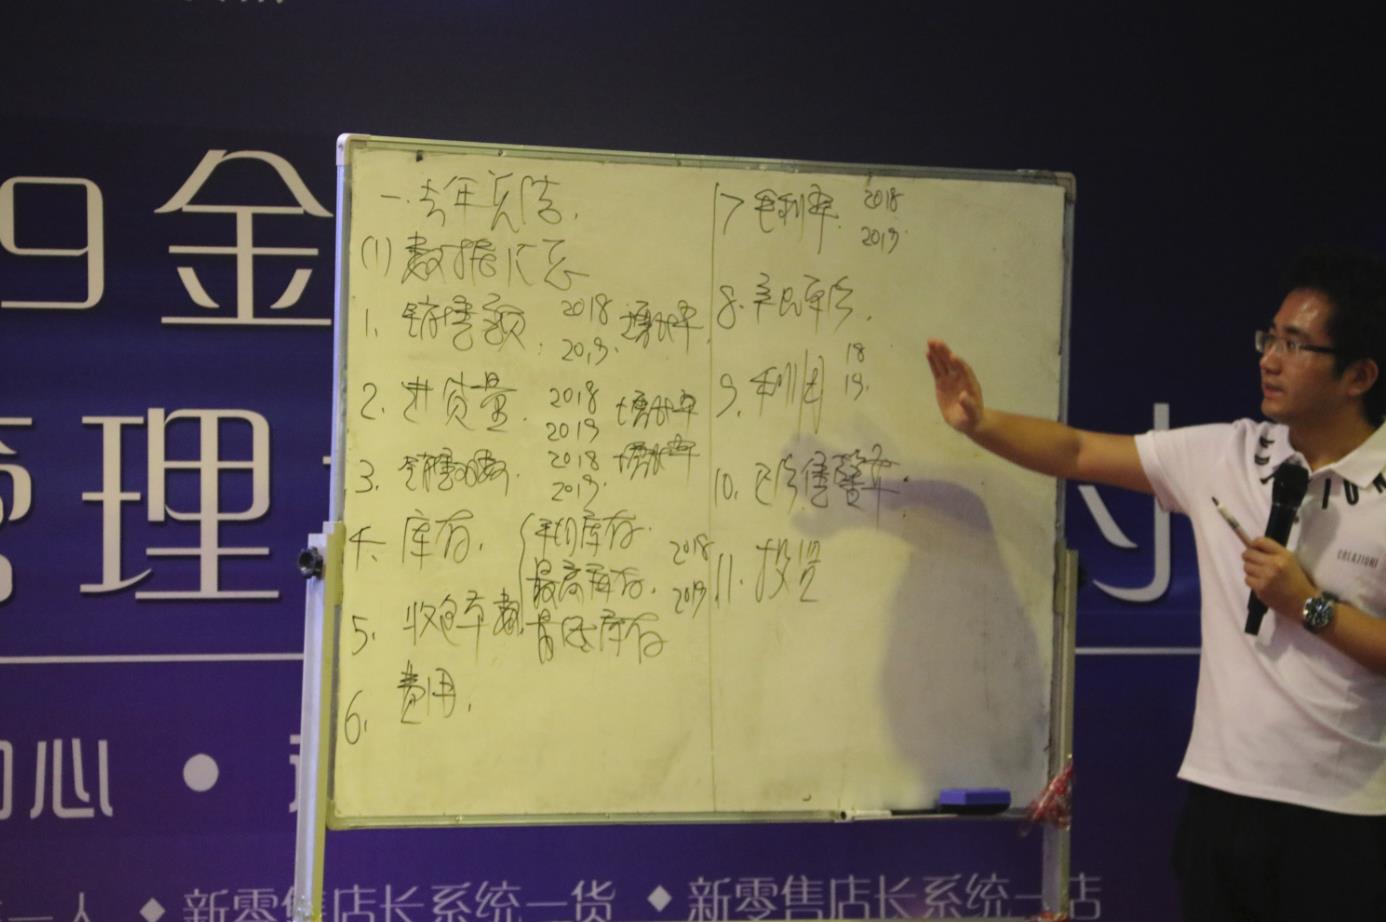 9金
管理
心 •
一人 ◆ 新零售店长系统一货 ◆ 新零售店长系统一店
一.去年总结.
(1) 数据汇总
1. 销售额: 2018 增长率.
2019.
2. 进货量. 2018 增长率
2019
3. 销售 数. 2018 增长率
2019.
4. 库存. 平均库存. 2018
最高库存. 2019
最低库存
5. 收 数
6. 费用.
7 毛利率 2018
2019.
8.
9. 利润 18
19.
10.
11. 投资
CREAZIONI